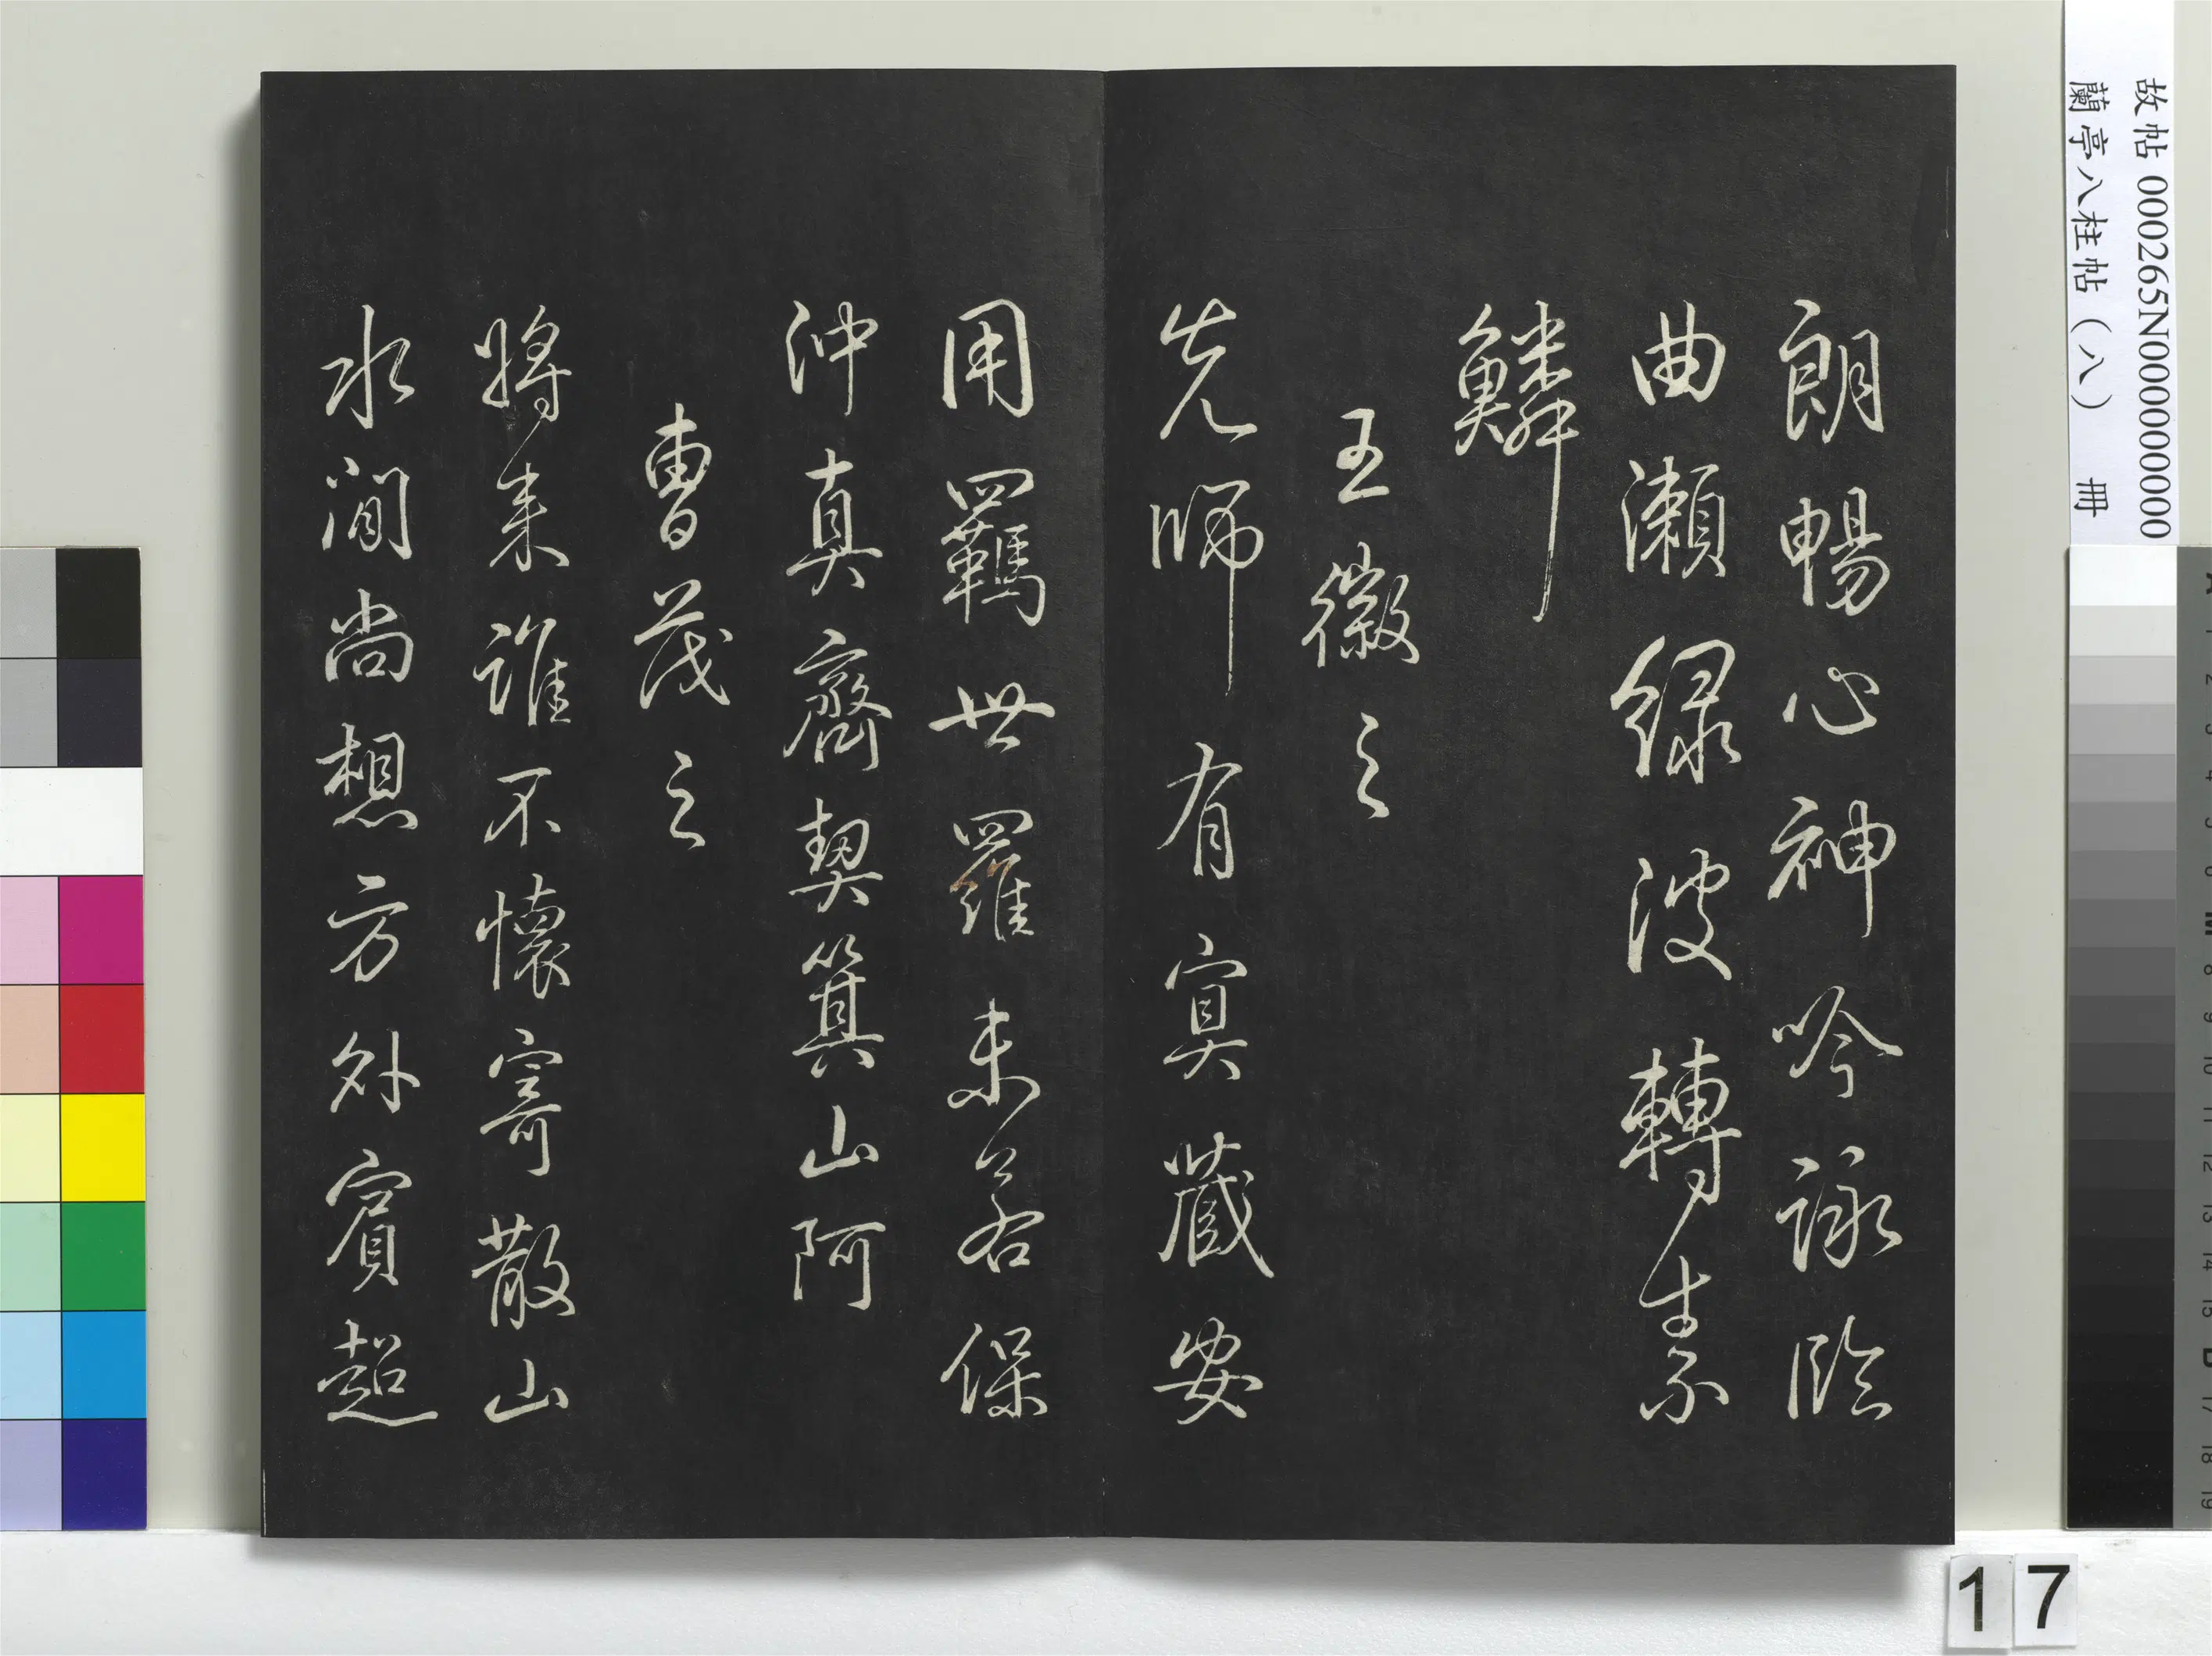 故帖 000265N000000000
蘭亭八柱帖（八） 冊
朗暢心神吟詠臨
曲瀨緑波轉生素
鱗
王徽之
先師有冥藏安
用羈世羅未若保
沖真齊契箕山阿
曹茂之
將来誰不懷寄散山
水間尚想方外賓超
17